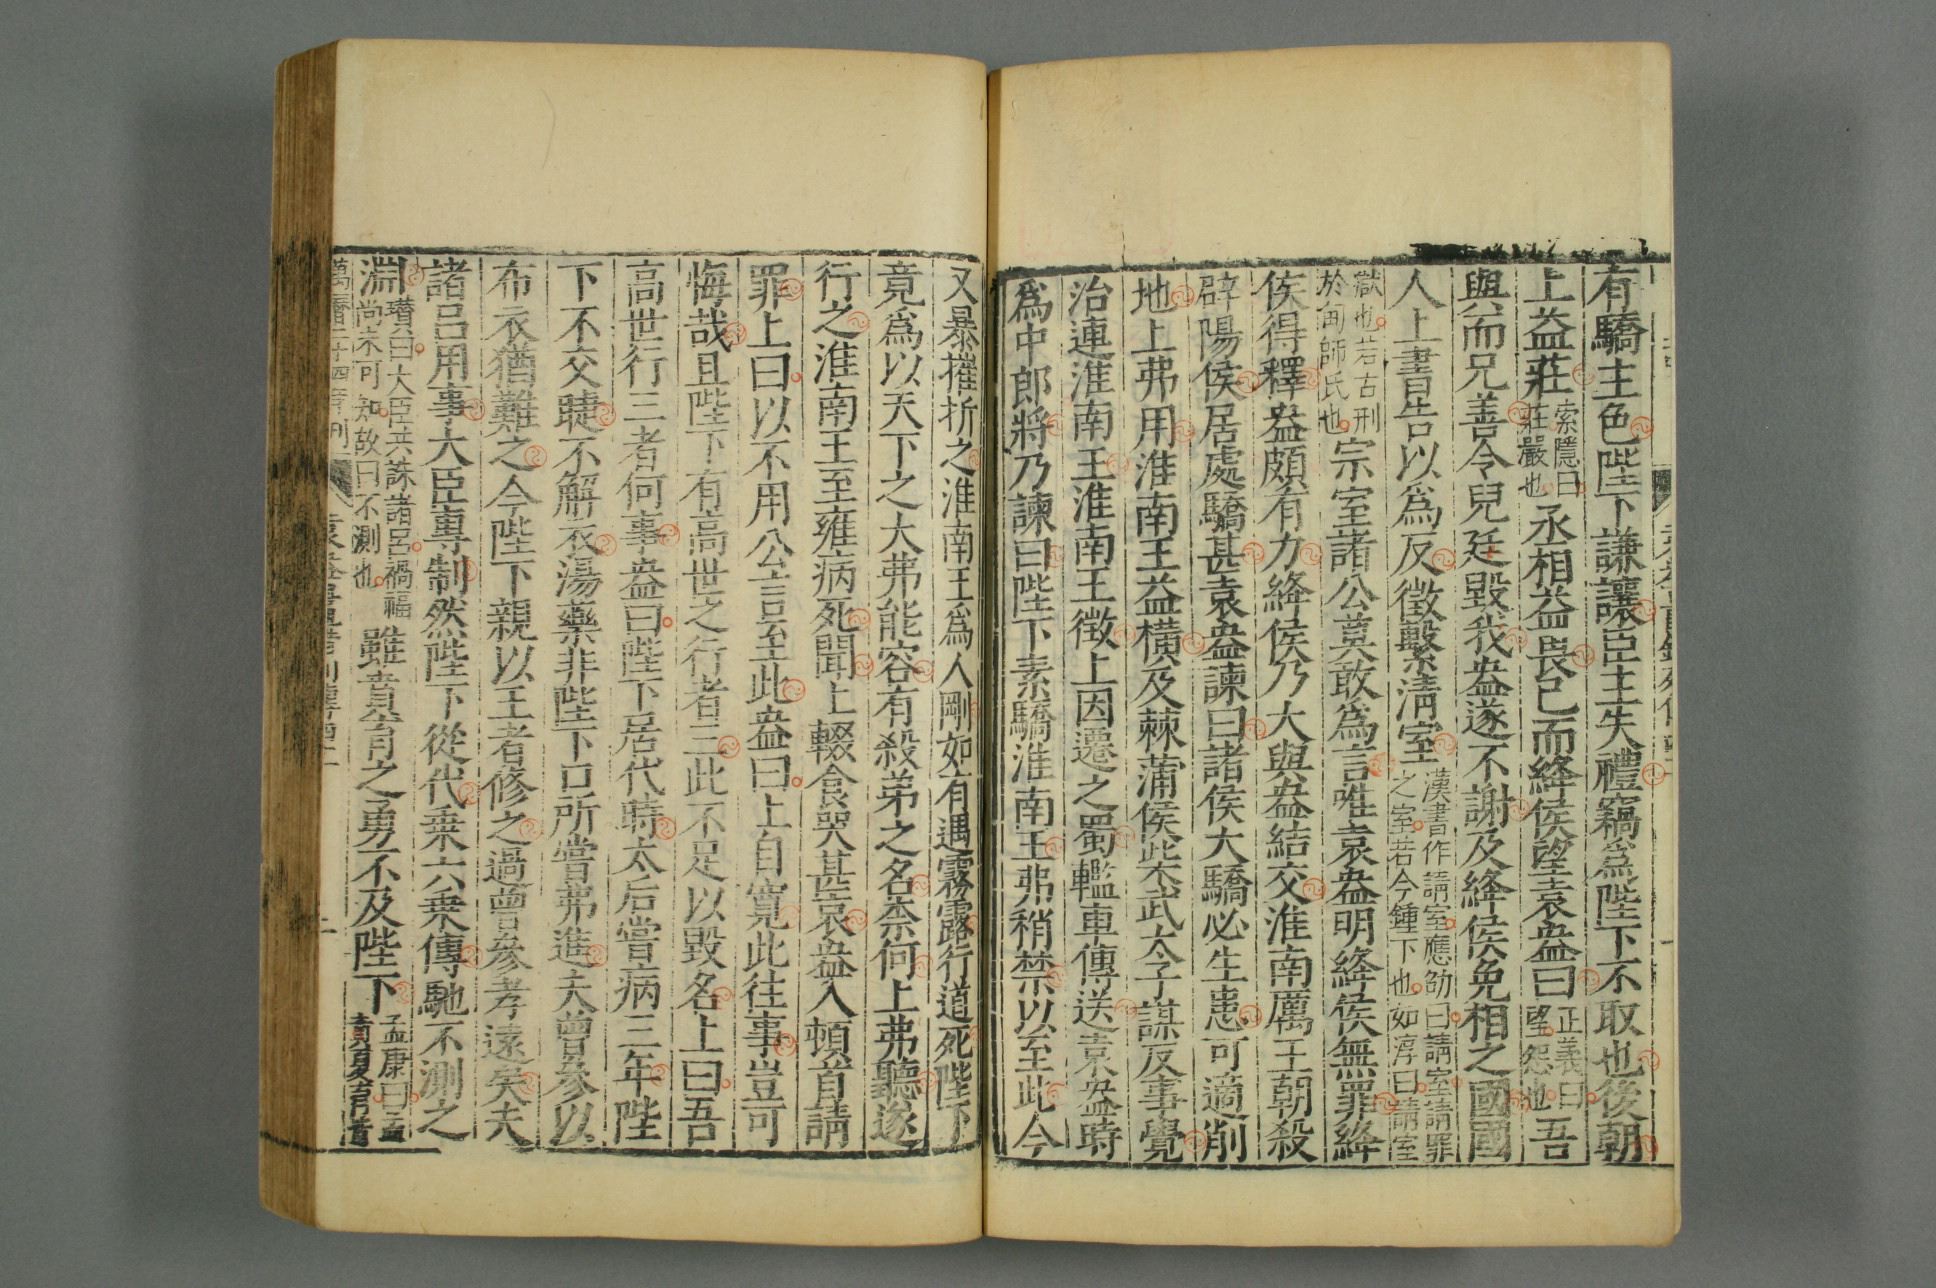 有驕主色陛下謙讓臣主失禮竊爲陛下不取也後朝
上益莊索隱曰莊嚴也丞相益畏已而絳侯望袁盎曰正義曰望怨也吾
與而兄善今兒廷毀我盎遂不謝及絳侯免相之國國
人上書告以爲反徵繫清室漢書作請室應劭曰請室請罪之室若今鍾下也如淳曰請室
獄也若古刑於甸師氏也宗室諸公莫敢爲言唯袁盎明絳侯無罪絳
侯得釋盎頗有力絳侯乃大與盎結交淮南厲王朝殺
辟陽侯居處驕甚袁盎諫曰諸侯大驕必生患可適削
地上弗用淮南王益橫及棘蒲侯柴武太子謀反事覺
治連淮南王淮南王徵上因遷之蜀轞車傳送袁盎時
爲中郎將乃諫曰陛下素驕淮南王弗稍禁以至此今
又暴摧折之淮南王爲人剛如有遇霧露行道死陛下
竟爲以天下之大弗能容有殺弟之名柰何上弗聽遂
行之淮南王至雍病死聞上輟食哭甚哀盎入頓首請
罪上曰以不用公言至此盎曰上自寬此往事豈可
悔哉且陛下有高世之行者三此不足以毀名上曰吾
高世行三者何事盎曰陛下居代時太后嘗病三年陛
下不交睫不解衣湯藥非陛下口所嘗弗進夫曾參以
布衣猶難之今陛下親以王者修之過曾參孝遠矣夫
諸呂用事大臣專制然陛下從代乘六乘傳馳不測之
淵瓚曰大臣共誅諸呂禍福尚未可知故曰不測也雖賁育之勇不及陛下孟康曰孟賁夏育皆
萬曆二十四年刊 袁盎鼂錯列傳四十一 二